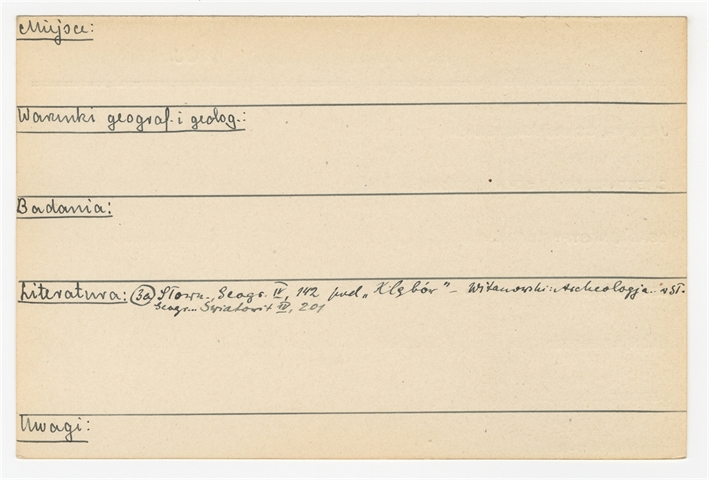 Miejsce:
Warunki geograf. i geolog.:
Badania:
Literatura: (3a) Słown. Geogr. IV, 142 pod „Kłębów" – Witanowski: Archeologja.. w Sł.
Geogr... Światowit IV, 201
Uwagi: